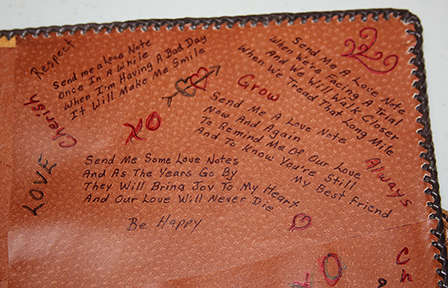 Respect
Send me a Love Note
Once In A While
When I'm Having A Bad Day
It Will Make Me Smile
Cherish
XO
LOVE
Grow
Send Me A Love Note
When We're Facing A Trial
And We Will Walk Closer
When We Tread That Long Mile
Send Me A Love Note
Now And Again
To Remind Me Of Our Love
And To Know You're Still
My Best Friend
Always
Send Me Some Love Notes
And As The Years Go By
They Will Bring Joy To My Heart
And Our Love Will Never Die
Be Happy
XO
Ch